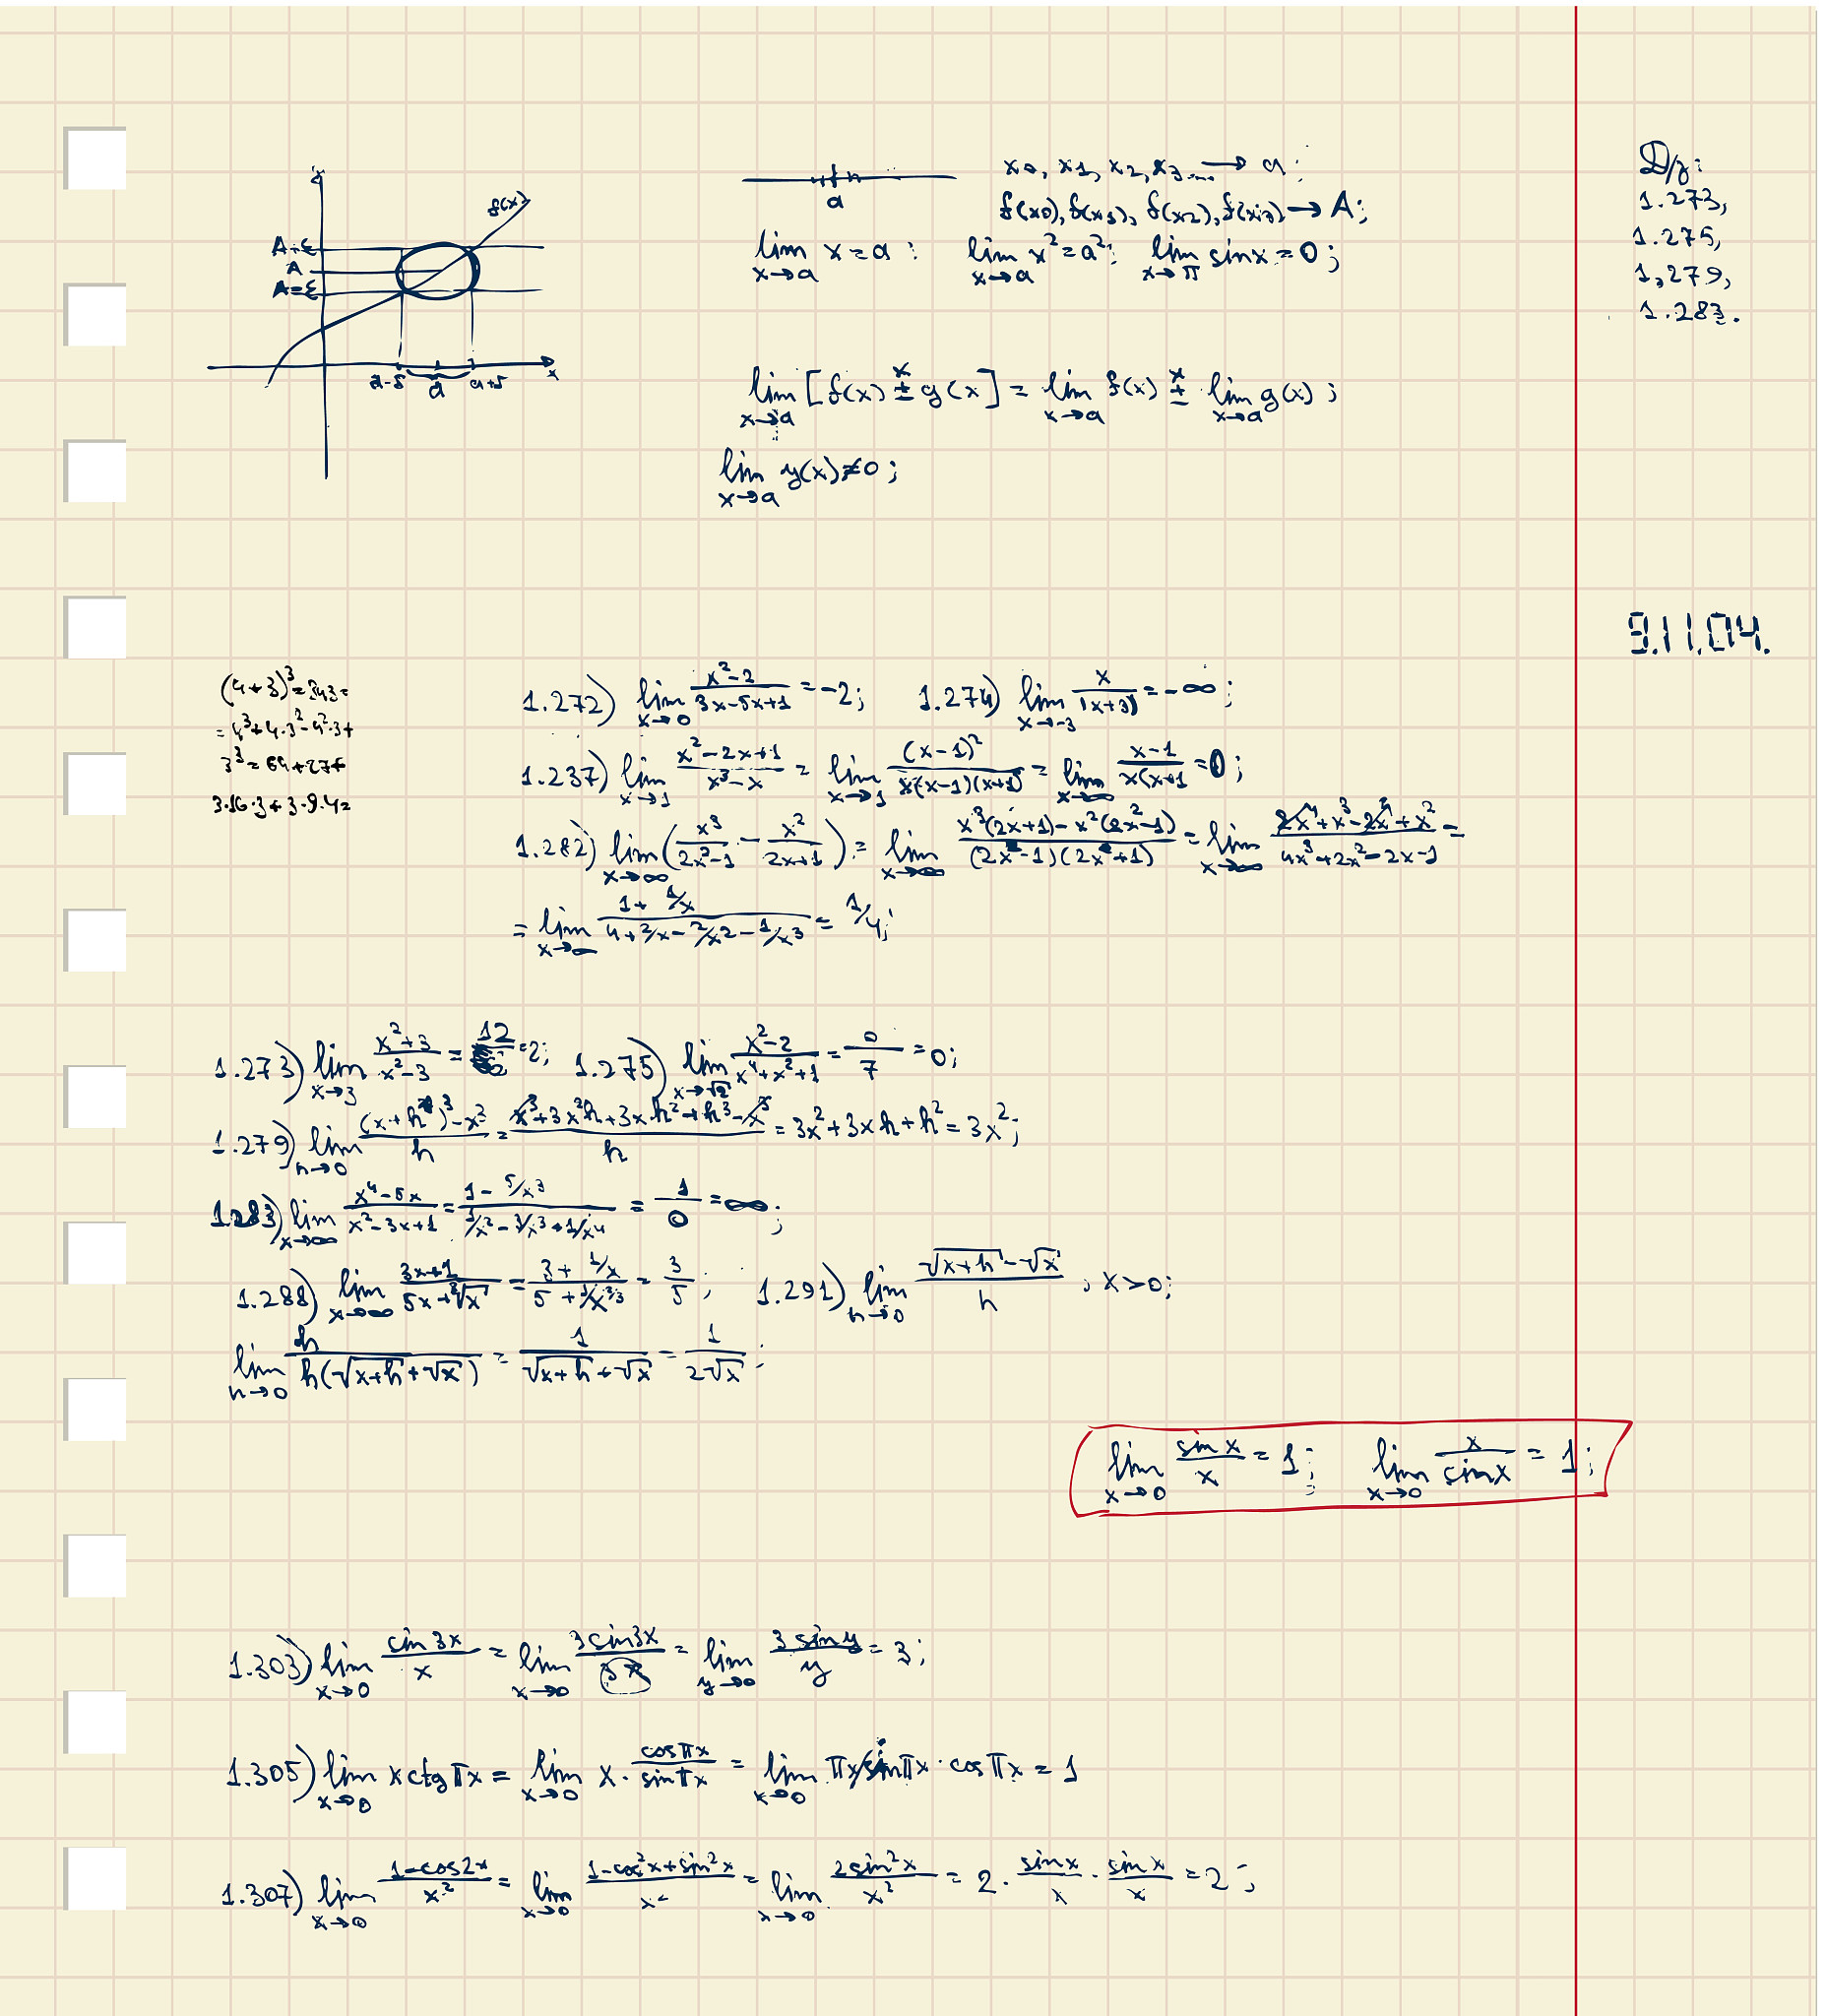 y
f(x)
A+ε
A
A=ε
a-δ a a+δ x
a
x0, x1, x2, x3... → a;
f(x0), f(x1), f(x2), f(x3) → A;
lim x→a x = a; lim x→a x² = a²; lim x→π sinx = 0;
lim x→a [f(x) ×± g(x)] = lim x→a f(x) ×± lim x→a g(x);
lim x→a y(x) ≠ 0;
Д/з:
1.273,
1.275,
1,279,
1.283.
9.11.04.
(4+3)³=343=
=4³+4·3²-4²·3+
3³=64+27+
3·16·3+3·9·4=
1.272) lim x→0 (x²-2)/(3x-5x+1) = -2; 1.274) lim x→-3 x/|x+3| = -∞;
1.237) lim x→1 (x²-2x+1)/(x³-x) = lim x→1 (x-1)²/(x(x-1)(x+1)) = lim x→∞ (x-1)/(x(x+1) = 0;
1.282) lim x→∞ (x³/(2x²-1) - x²/(2x+1)) = lim x→∞ (x³(2x+1)-x²(2x²-1))/((2x²-1)(2x+1)) = lim x→∞ (2x⁴+x³-2x⁴+x²)/(4x³+2x²-2x-1) =
= lim x→∞ (1+1/x)/(4+2/x-2/x2-1/x3) = 1/4;
1.273) lim x→3 (x²+3)/(x²-3) = 12/6 = 2; 1.275) lim x→√2 (x²-2)/(x⁴+x²+1) = 0/7 = 0;
1.279) lim h→0 ((x+h)³-x³)/h = (x³+3x²h+3xh²+h³-x³)/h = 3x²+3xh+h² = 3x²;
1.283) lim x→∞ (x⁴-5x)/(x²-3x+1) = (1-5/x³)/(1/x²-3/x³+1/x⁴) = 1/0 = ∞;
1.288) lim x→∞ (3x+1)/(5x+³√x) = (3+1/x)/(5+1/x^2/3) = 3/5; 1.291) lim h→0 (√(x+h)-√x)/h, x>0;
lim h→0 h/(h(√(x+h)+√x)) = 1/(√(x+h)+√x) = 1/(2√x);
lim x→0 sinx/x = 1; lim x→0 x/sinx = 1;
1.303) lim x→0 sin3x/x = lim x→0 3sin3x/3x = lim y→0 3siny/y = 3;
1.305) lim x→0 xctgπx = lim x→0 x·cosπx/sinπx = lim x→0 πx/sinπx · cosπx = 1
1.307) lim x→0 (1-cos2x)/x² = lim x→0 (1-cos²x+sin²x)/x² = lim x→0 2sin²x/x² = 2·sinx/x·sinx/x = 2;